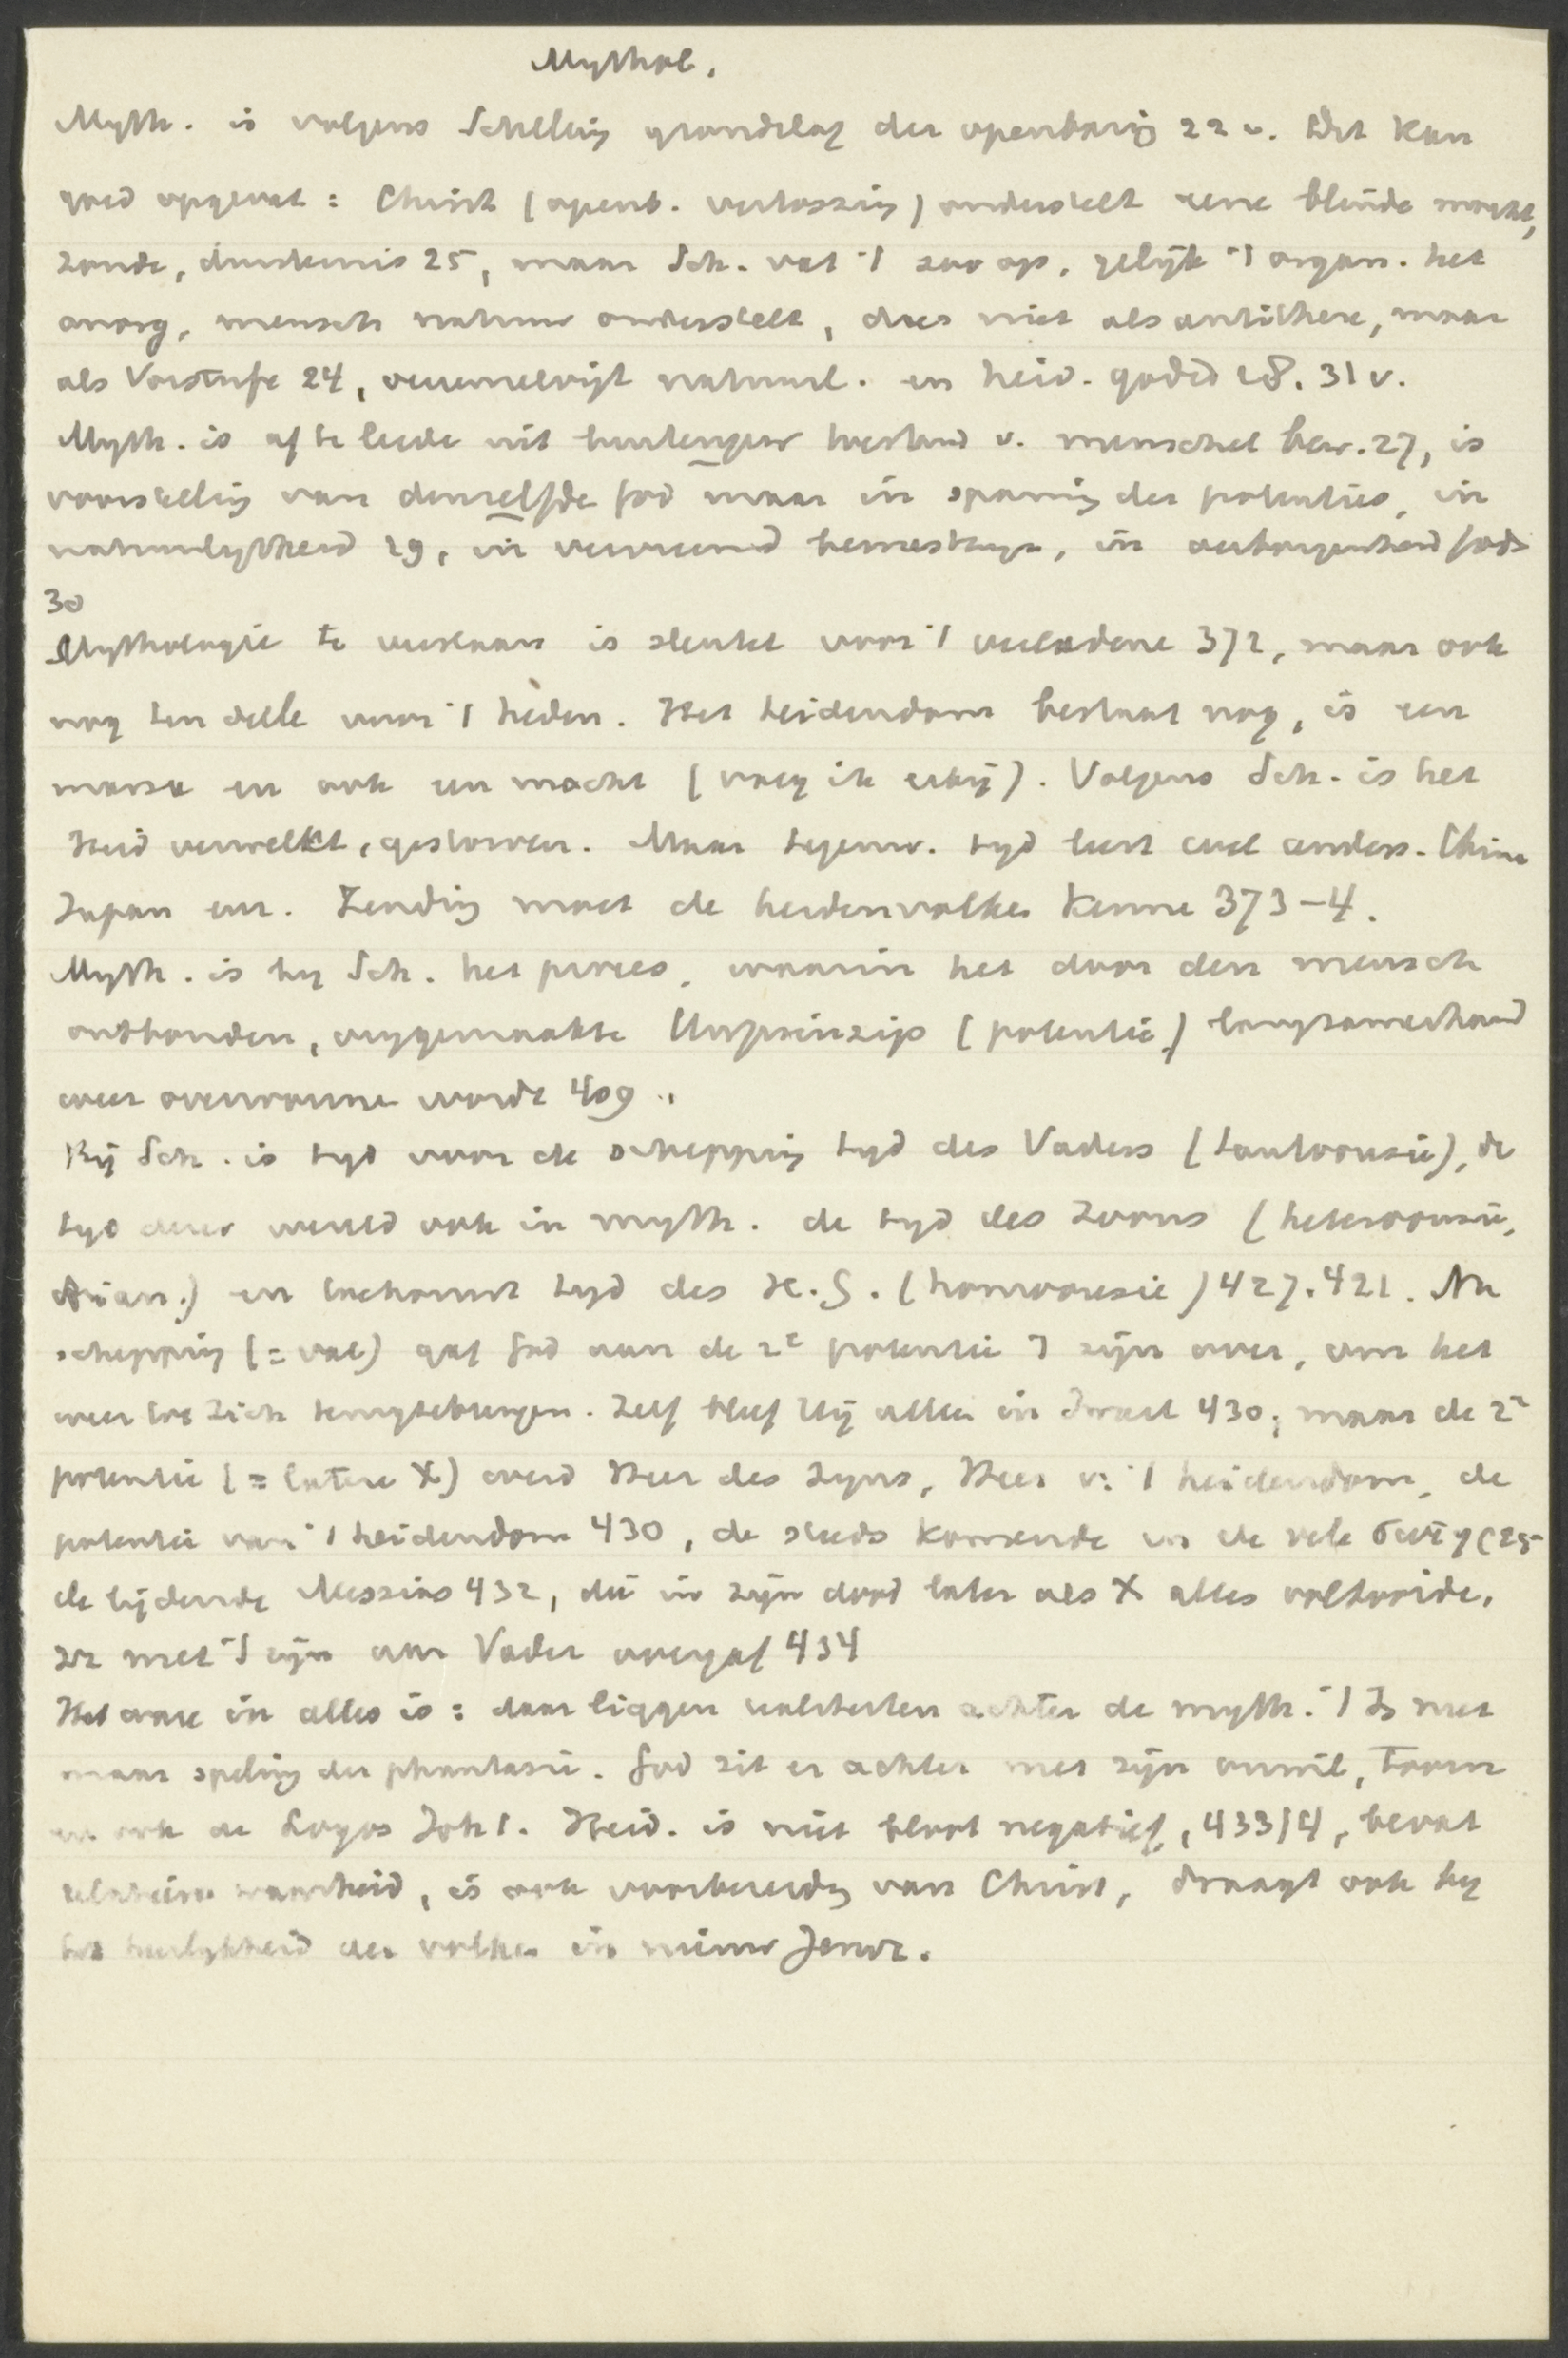 Mythol.
Myth. is volgens Schelling grondslag der openbaring 22 v. Dit kan
goed opgevat: Christ (openb. verlossing) onderstelt eene blinde macht,
zonde, duisternis 25, maar Sch. vat 't zoo op, gelijk 't organ. het
anorg, mensch natuur onderstelt, dus niet als antithese, maar
als Vorstufe 24, natuurl. en heid. godsd 28. 31 v.
Myth. is af te leide uit toestand v. menschel bew. 27, is
voorstelling van denzelfde God maar in spanning der potenties, in
natuurlijkheid 29, in vervreemd, in verborgenheid Gods
30
Mythologie te verstaan is sleutel voor 't verledene 372, maar ook
nog ten deele voor 't heden. Het heidendom bestaat nog, is een
massa en ook een macht (voeg ik erbij). Volgens Sch. is het
Heid verwelkt, gestorven. Maar tegenw. tijd leert wel anders. China
Japan enz. Zending moet de heidenvolken kenne 373-4.
Myth. is bij Sch. het proces, waarin het door den mensch
ontbonden, vrijgemaakte Urprinzip (potentie) langzamerhand
weer overwonne worde 409..
Bij Sch. is tijd voor de schepping tijd des Vaders (tautoousie), de
tijd dezer wereld ook in myth. de tijd des Zoons (heteroousie,
Arian.) en toekomst tijd des H.G. (homoousie) 427. 421. Na
schepping (= val) gaf God aan de 2e potentie 't zijn over, om het
weer tot zich terugtebrengen. Zelf bleef Hij alleen in Israel 430, maar de 2e
potentie (= latere X) werd Heer des Zijns, Heer v. 't heidendom, de
potentie van 't heidendom 430, de steeds komende in de vele
de lijdende Messias 432, die in zijn dood later als X alles voltooide,
en met 't zijn aan Vader overgaf 434
Het ware in alles is: daar liggen realiteiten achter de myth. 't Is niet
maar speling der phantasie. God zit er achter met zijn onwil, toorn
en ook de Logos Joh 1. Heid. is niet bloot negatief, 433/4, bevat
relatieve waarheid, is ook voorbereiding van Christ, draagt ook bij
tot heerlijkheid der volken in nieuw Jeruz.